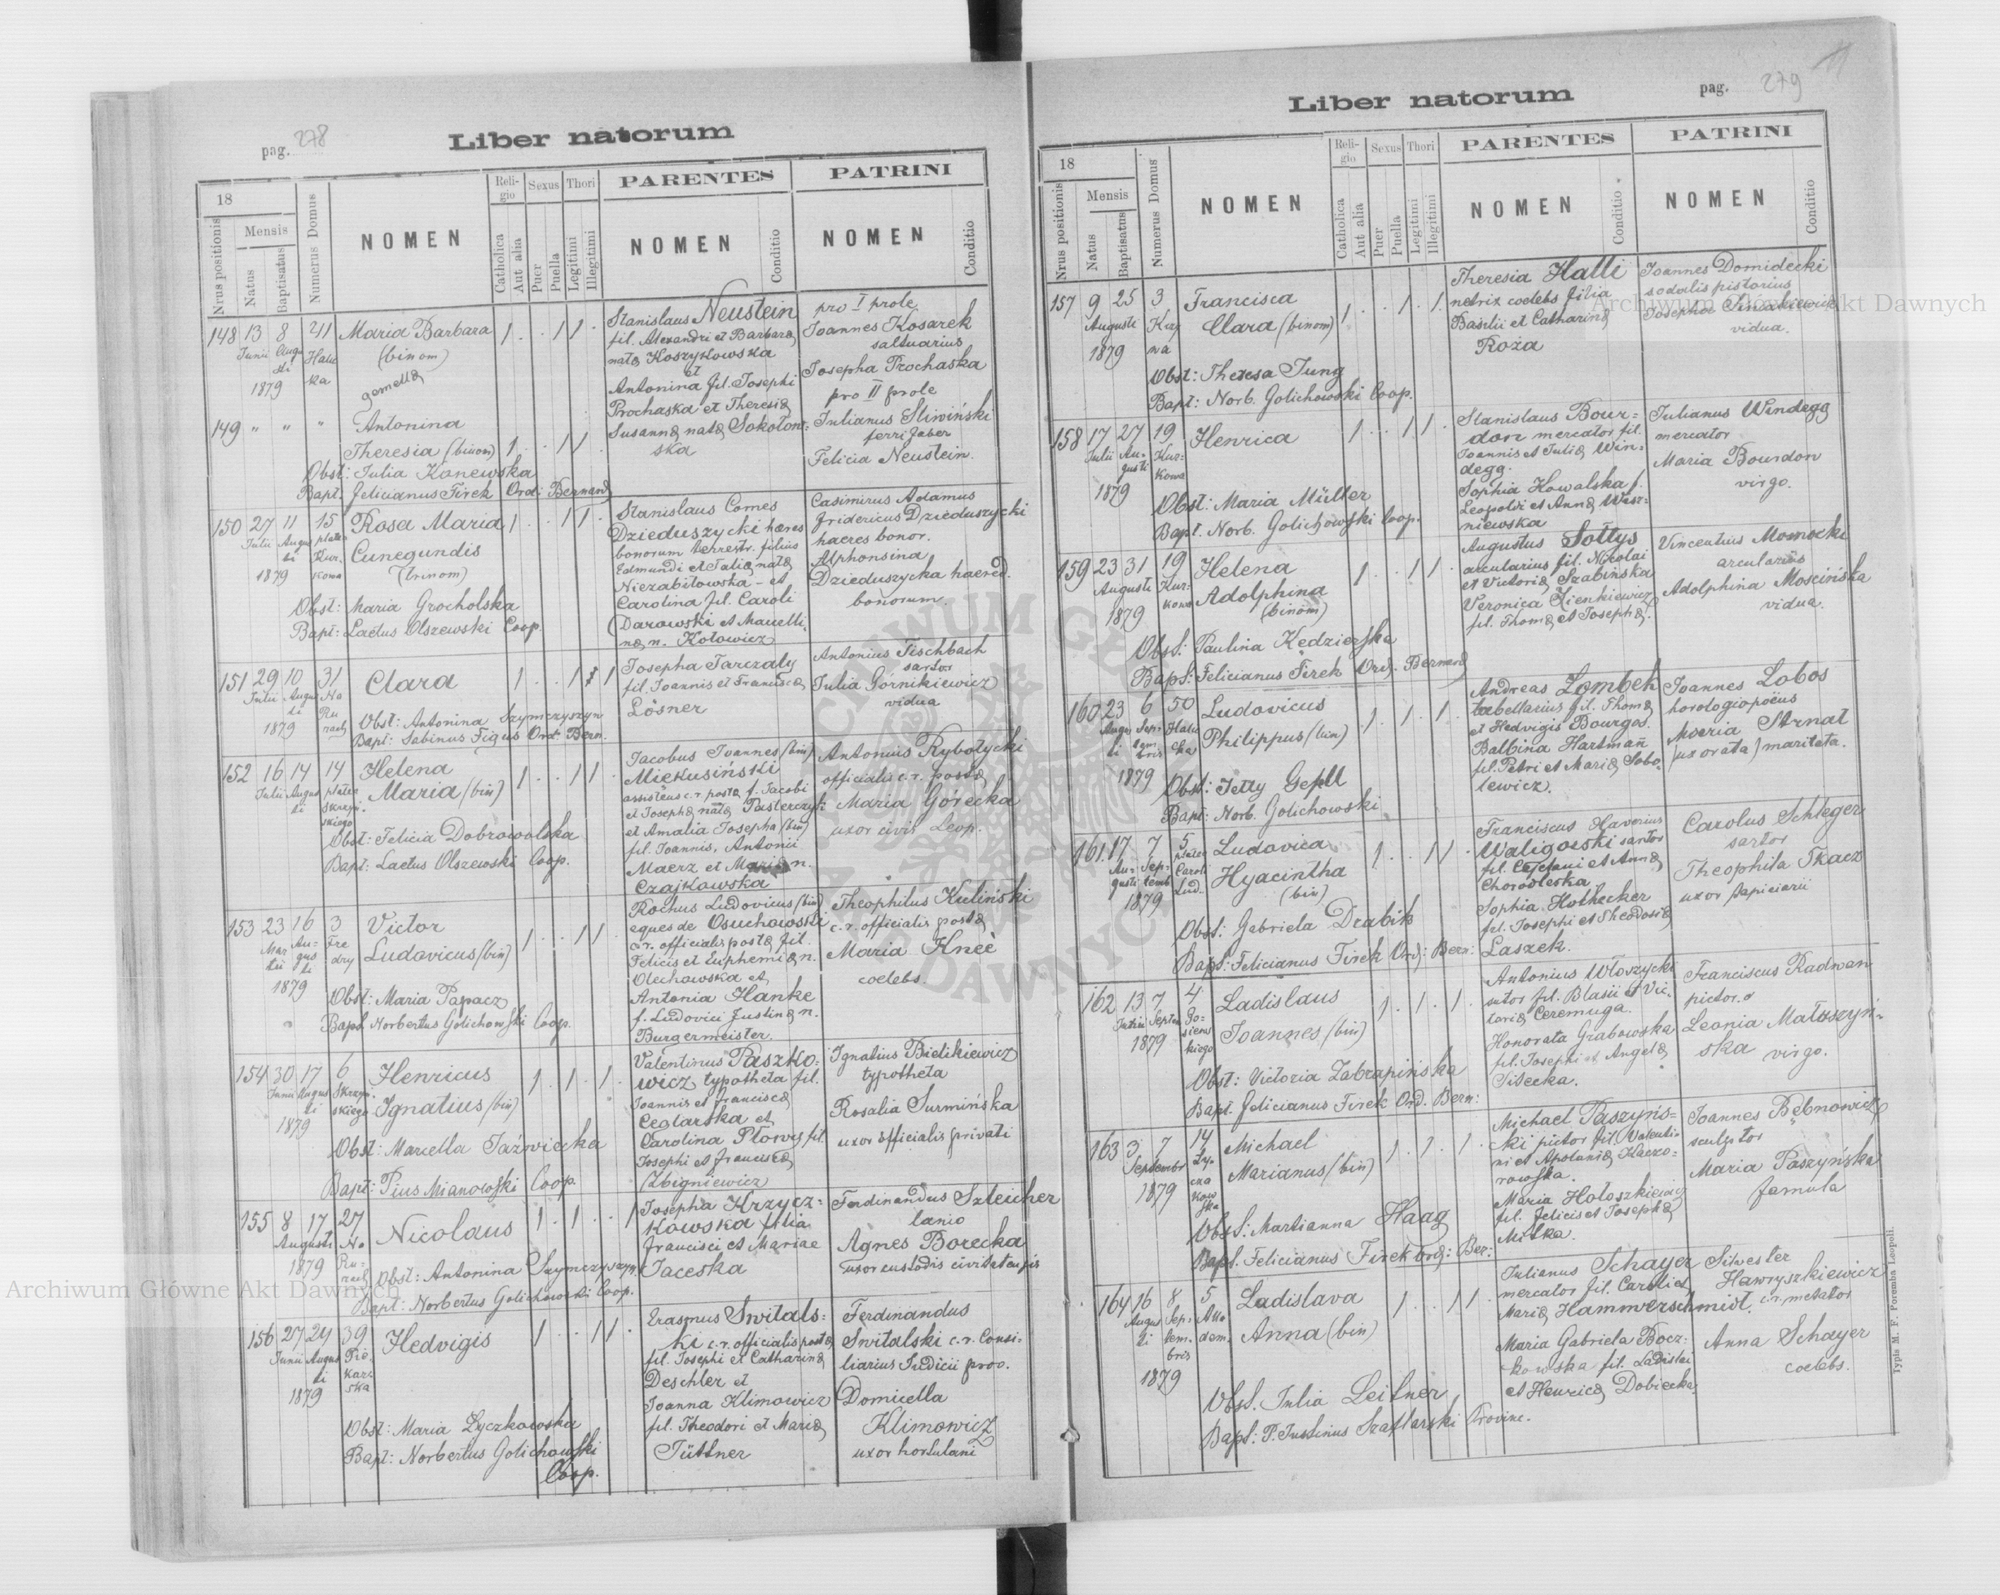 pag. 278
Liber natorum
18
Mensis
Nrus positionis
Natus
Baptisatus
Numerus Domus
NOMEN
Reli-
gio
Sexus
Thori
Catholica
Aut alia
Puer
Puella
Legitimi
Illegitimi
PARENTES
NOMEN
Conditio
PATRINI
NOMEN
Conditio
148 13 8
Junii
1879
Maria Barbara
(binom)
gemellæ
Stanislaus Neustein
fil. Alexandri et Barbaræ
natæ Koszykowska
et
Antonina fil. Josephi
Prochaska et Theresiæ
Susannæ natæ
pro I prole
Joannes Kosarek
saltuarius
Josepha Prochaska
pro II prole
Julianus Sliwiński
ferri faber
Felicia Neustein
149 " " "
Antonina
Theresia (binom)
Obst: Julia Konewska
Bapt. Felicianus Firek Ord: Bernard
150 27 11 15
Julii
1879
Rosa Maria
Cunegundis
(trinom)
Obst: Maria Grocholska
Bapt: Laetus Olszewski Coop.
Stanislaus Comes
Dzieduszycki hæres
bonorum terrestr. filius
Edmundi et natæ
Niezabitowska - et
Carolina fil. Caroli
Darowski et Marcelli-
næ n. Kotowicz
Casimirus Adamus
Fridericus Dzieduszycki
haeres bonor.
Alphonsina
Dzieduszycka haered.
bonorum.
151 29 10 31
Julii
1879
Clara
Obst: Antonina Szymczyszyn
Bapt: Sabinus Figus Ord: Bern.
Josepha Tarczaly
fil. Joannis et Franciscæ
Lösner
Antonius Fischbach
sartor
Julia Górnikiewicz
vidua
152 16 14 14
Julii
Helena
Maria (bin)
Obst: Felicia Dobrowolska
Bapt: Laetus Olszewski Coop.
Jacobus Joannes (bin)
Miekusiński
assistens c.r. postæ f. Jacobi
et Josephæ natæ Pasterczyk
et Amalia Josepha (bin)
fil. Joannis, Antonii
Maerz et n.
Czajkowska
Antonius Rybotycki
officialis c.r. postæ
Maria Górecka
uxor civis Leop.
153 23 16 3
1879
Victor
Ludovicus (bin)
Obst: Maria Papacz
Bapt Norbertus Golichowski Coop.
Rochus Ludovicus (bin)
eques de Osuchowski
c.r. officialis postæ fil.
Felicis et Euphemiæ n.
Olechowska et
Antonia Hanke
f. Ludovici Justinæ n.
Burgermeister.
Theophilus Kuliński
c.r. officialis postæ
Maria Kneè
coelebs.
154 30 17 6
Junii
1879
Henricus
Ignatius (bin)
Obst: Marcella Jaźwiecka
Bapt: Pius Mianowski Coop.
Valentinus Paszko-
wicz typotheta fil.
Joannis et Franciscæ
Ceglarska et
Carolina fil.
Josephi et Franciscæ
Zbigniewicz
Ignatius Bielikiewicz
typotheta
Rosalia Surmińska
uxor officialis privati
155 8 17 27
Augusti
1879
Nicolaus
Obst: Antonina Szymczyszyn
Bapt: Norbertus Golichowski Coop.
Josepha Krzycz-
kowska filia
Francisci et Mariae
Jaceska
Ferdinandus Szleicher
lanio
Agnes Borecka
uxor custodis civitatensis
156 27 24 39
Junii
1879
Hedvigis
Obst: Maria Lyczkowska
Bapt: Norbertus Golichowski
Coop.
Erasmus Switals-
ki c.r. officialis postæ
fil. Josephi et Catharinæ
Deschler et
Joanna Klimowicz
fil. Theodori et Mariæ
Tüttner
Ferdinandus
Switalski c.r. Consi-
liarius Judicii prov.
Domicella
Klimowicz
uxor hortulani
pag. 279
Liber natorum
18
Mensis
Nrus positionis
Natus
Baptisatus
Numerus Domus
NOMEN
Reli-
gio
Sexus
Thori
Catholica
Aut alia
Puer
Puella
Legitimi
Illegitimi
PARENTES
NOMEN
Conditio
PATRINI
NOMEN
Conditio
157 9 25 3
Augusti
1879
Francisca
Clara (binom)
Obst: Theresa Jung
Bapt: Norb. Golichowski Coop.
Theresia Halli
netrix coelebs filia
Basilii et Catharinæ
Roża
Joannes Domidecki
sodalis pistorius
Josepha
vidua.
158 17 27 19
Julii
1879
Henrica
Obst: Maria Müller
Bapt. Norb. Golichowski Coop.
Stanislaus Bour-
don mercator fil.
Joannis et Juliæ Win-
degg.
Sophia Kowalska f.
Leopoldi et Annæ
niewska
Julianus Windegg
mercator
Maria Bourdon
virgo.
159 23 31 19
Augusti
1879
Helena
Adolphina
(binom)
Obst: Paulina Kędzierska
Bapt: Felicianus Firek Ord. Bernard
Augustus Sottys
arcularius fil. Nicolai
et Victoriæ Szabińska
Veronica Zienkiewicz
fil. Thomæ et Josephæ.
Vincentius Momocki
arcularius
Adolphina Moscińska
vidua.
160 23 6 50
1879
Ludovicus
Philippus (bin)
Obst: Jetty Gepll
Bapt: Norb. Golichowski
Andreas Lombek
tabellarius fil. Thomæ
et Hedvigis Bourgos.
Balbina Hartmañ
fil. Petri et Mariæ Sobo-
lewicz.
Joannes Lobos
horologiopoëus
Maria Strnat
maritata.
161 17 7 5
1879
Ludovica
Hyacintha
(bin)
Obst: Gabriela Drabik
Bapt: Felicianus Firek Ord: Bern:
Franciscus Xaverius
Waligorski sartor
fil. Cajetani et Annæ
Chorodleska
Sophia Hothecker
fil. Josephi et Theodosiæ
Laszek.
Carolus Schleger
sartor
Theophila Tkacz
uxor papiciarii
162 13 7 4
1879
Ladislaus
Joannes (bin)
Obst: Victoria Zabrapińska
Bapt. Felicianus Firek Ord. Bern:
Antonius Włoszycki
sutor fil. Blasii et Vic-
toriæ Ceremuga.
Honorata Grabowska
fil. Josephi et Angelæ
Sitecka.
Franciscus Radwan
pictor.
Leonia Matuszyń-
ska virgo.
163 3 7 14
Septembr
1879
Michael
Marianus (bin)
Obst: Martianna Haag
Bapt. Felicianus Firek Ord: Ber:
Michael Paszyńs-
ki pictor fil. Valenti-
ni et Apoloniæ Kaczo-
rowska.
Maria Hołoszkiewicz
fil. Felicis et Josephæ
Mitka.
Joannes Bębnowicz
sculptor
Maria Paszyńska
famula
164 16 8 5
1879
Ladislava
Anna (bin)
Obst. Julia Leitner
Bapt: P. Justinus Szaflarski Provinc.
Julianus Schayer
mercator fil. Caroli et
Mariæ Hammerschmidt.
Maria Gabriela Bocz-
kowska fil. Ladislai
et Henricæ Dobiecka
Silvester
Hawryszkiewicz
c.r. metator
Anna Schayer
coelebs.
Typis M. F. Poremba Leopoli.
Archiwum Główne Akt Dawnych
Archiwum Główne Akt Dawnych